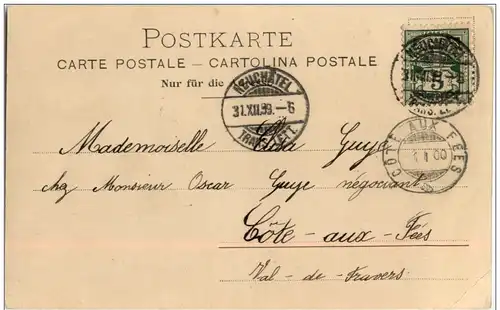 POSTKARTE
CARTE POSTALE – CARTOLINA POSTALE
Nur für die
NEUCHÂTEL
31.XII.99.–6
5
CÔTE AUX FÉES
00
Mademoiselle Elisa Guye
chez Monsieur Oscar Guye négociant
Côte-aux-Fées
Val-de-Travers